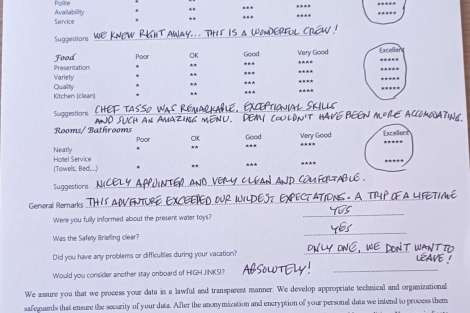 Polite * ** *** **** *****
Availability * ** *** **** *****
Service * ** *** **** *****
Suggestions WE KNEW RIGHT AWAY... THIS IS A WONDERFUL CREW!
Food Poor OK Good Very Good Excellent
Presentation * ** *** **** *****
Variety * ** *** **** *****
Quality * ** *** **** *****
Kitchen (clean) * ** *** **** *****
Suggestions CHEF TASSO WAS REMARKABLE. EXCEPTIONAL SKILLS
AND SUCH AN AMAZING MENU. DEMI COULDN'T HAVE BEEN MORE ACCOMODATING.
Rooms/ Bathrooms
Poor OK Good Very Good Excellent
Neatly * ** *** **** *****
Hotel Service
(Towels, Bed,...) * ** *** **** *****
Suggestions NICELY APPOINTED AND VERY CLEAN AND COMFORTABLE.
General Remarks THIS ADVENTURE EXCEEDED OUR WILDEST EXPECTATIONS. A TRIP OF A LIFETIME
Were you fully informed about the present water toys? YES
Was the Safety Briefing clear? YES
Did you have any problems or difficulties during your vacation? ONLY ONE, WE DON'T WANT TO
LEAVE!
Would you consider another stay onboard of HIGH JINKS!? ABSOLUTELY!
We assure you that we process your data in a lawful and transparent manner. We develop appropriate technical and organizational
safeguards that ensure the security of your data. After the anonymization and encryption of your personal data we intend to process them